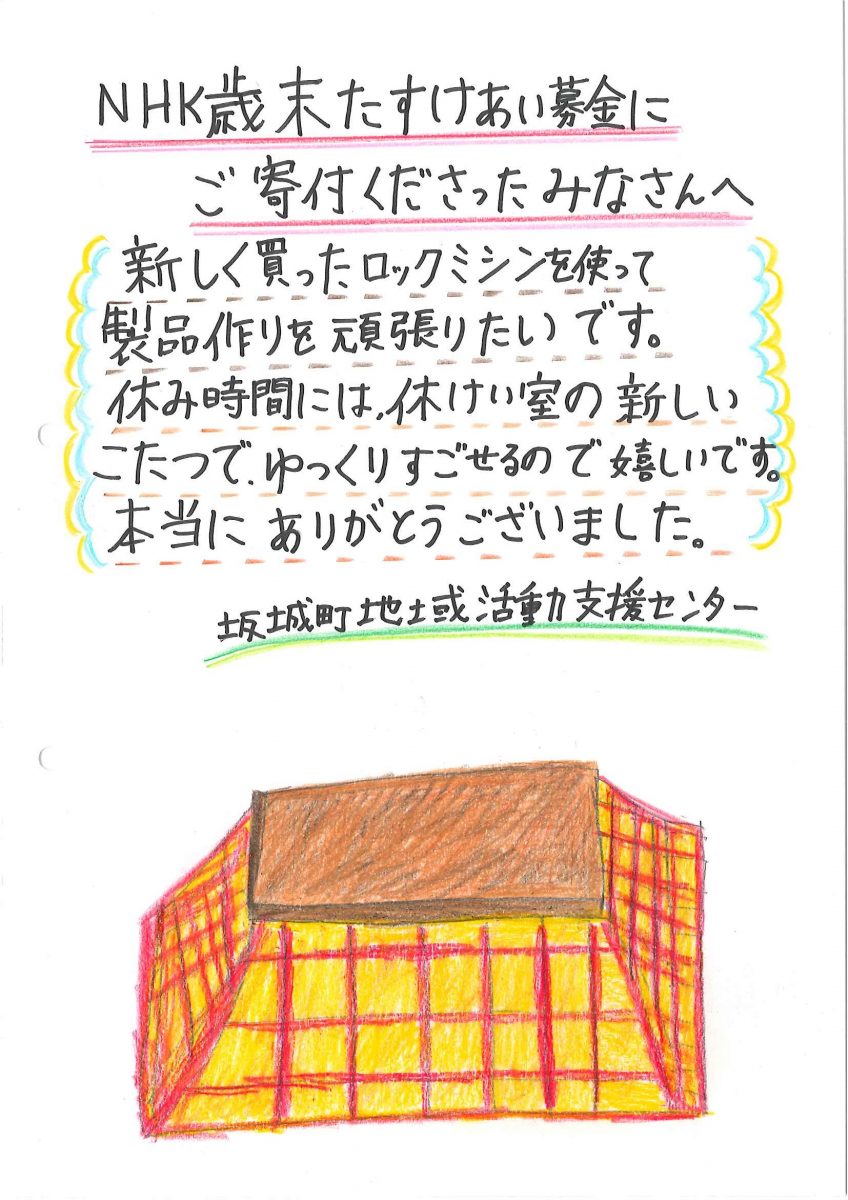 NHK歳末たすけあい募金に
ご寄付くださったみなさんへ
新しく買ったロックミシンを使って
製品作りを頑張りたいです。
休み時間には、休けい室の新しい
こたつで、ゆっくりすごせるので嬉しいです。
本当にありがとうございました。
坂城町地域活動支援センター